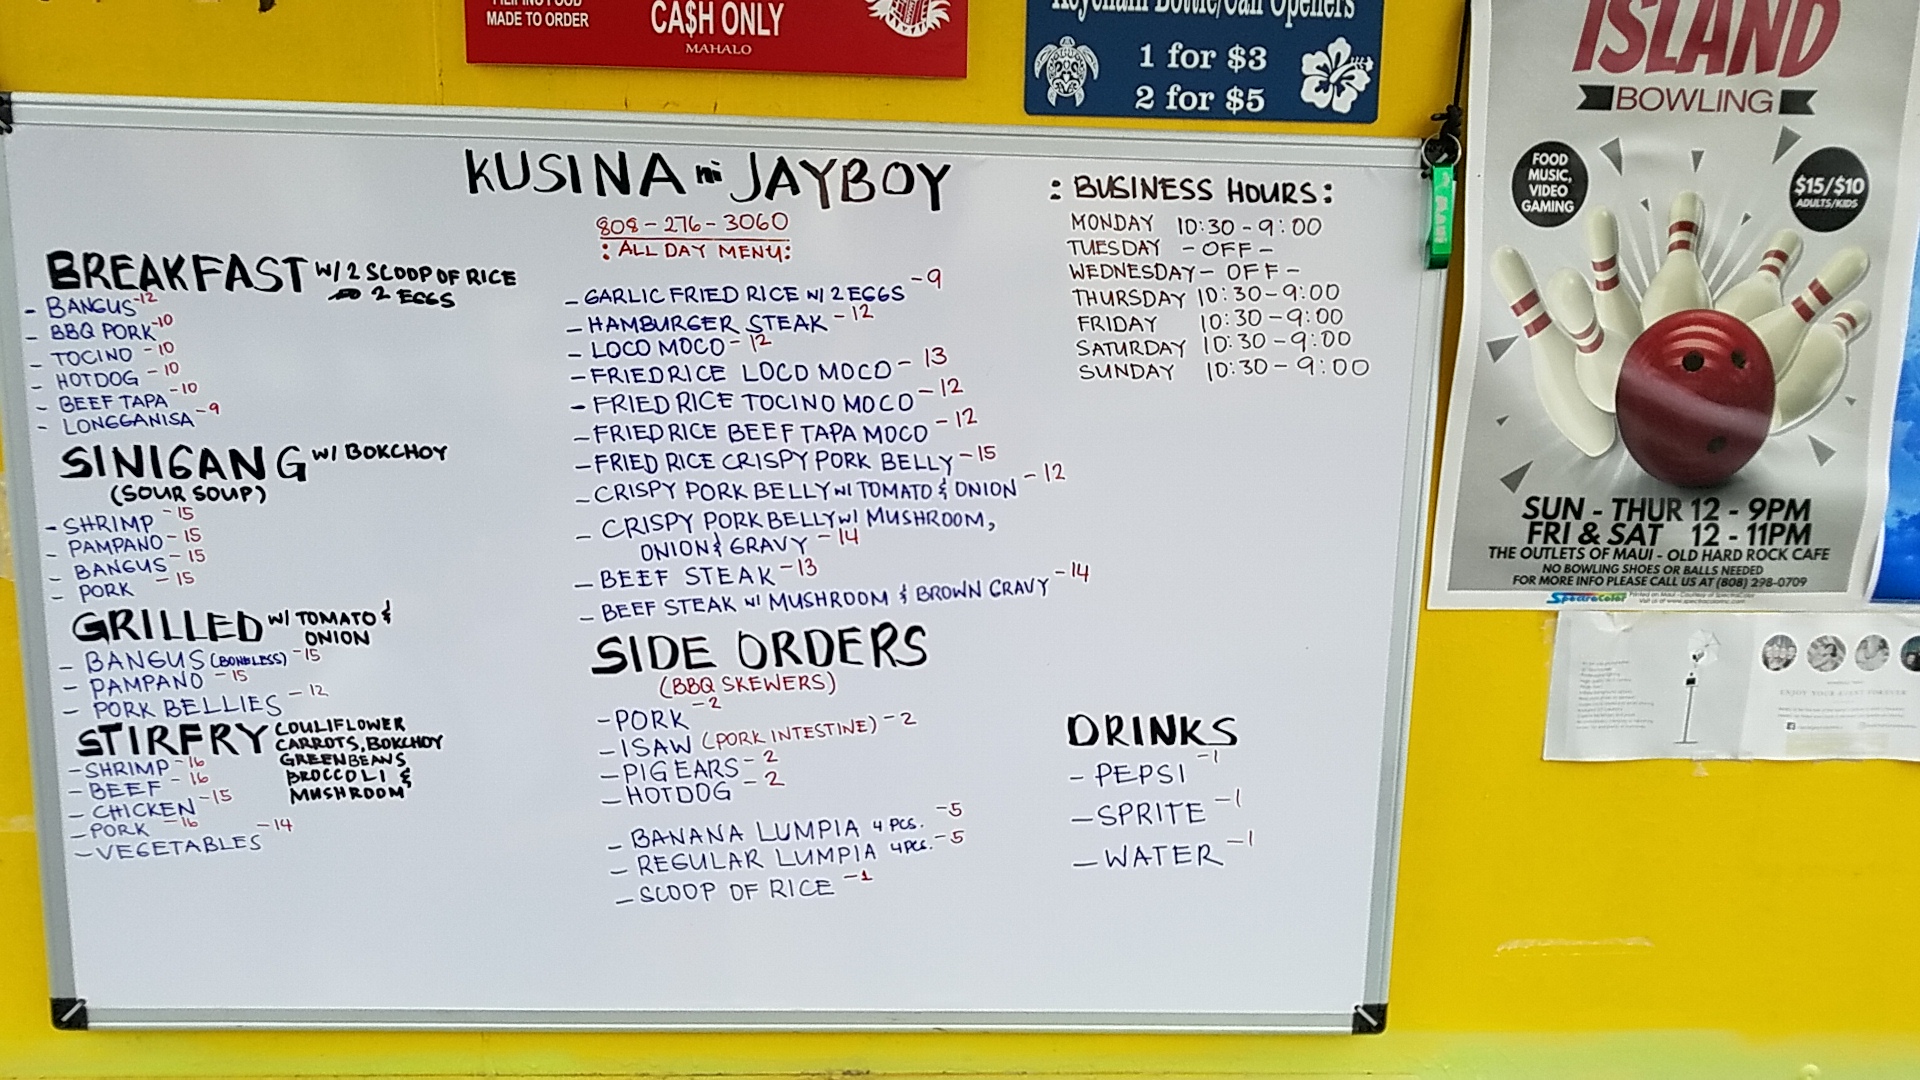 MADE TO ORDER
CA$H ONLY
MAHALO
Keychain Bottle/Can Openers
1 for $3
2 for $5
KUSINA ni JAYBOY
808-276-3060
: ALL DAY MENU:
BREAKFAST W/ 2 SCOOP OF RICE
2 EGGS
- BANGUS -12
- BBQ PORK -10
- TOCINO -10
- HOTDOG -10
- BEEF TAPA -10
- LONGGANISA -9
SINIGANG W/ BOKCHOY
(SOUR SOUP)
- SHRIMP -15
- PAMPANO -15
- BANGUS -15
- PORK -15
GRILLED W/ TOMATO &
ONION
- BANGUS (BONELESS) -15
- PAMPANO -15
- PORK BELLIES -12
STIRFRY COULIFLOWER
CARROTS, BOKCHOY
GREENBEANS
BROCCOLI &
MUSHROOM
- SHRIMP -16
- BEEF -16
- CHICKEN -15
- PORK -16
- VEGETABLES -14
- GARLIC FRIED RICE W/ 2 EGGS -9
- HAMBURGER STEAK -12
- LOCO MOCO -12
- FRIED RICE LOCO MOCO -13
- FRIED RICE TOCINO MOCO -12
- FRIED RICE BEEF TAPA MOCO -12
- FRIED RICE CRISPY PORK BELLY -15
- CRISPY PORK BELLY W/ TOMATO & ONION -12
- CRISPY PORK BELLY W/ MUSHROOM,
ONION & GRAVY -14
- BEEF STEAK -13
- BEEF STEAK W/ MUSHROOM & BROWN GRAVY -14
SIDE ORDERS
(BBQ SKEWERS)
- PORK -2
- ISAW (PORK INTESTINE) -2
- PIG EARS -2
- HOTDOG -2
- BANANA LUMPIA 4 PCS. -5
- REGULAR LUMPIA 4 PCS. -5
- SCOOP OF RICE -1
: BUSINESS HOURS:
MONDAY 10:30-9:00
TUESDAY -OFF-
WEDNESDAY -OFF-
THURSDAY 10:30-9:00
FRIDAY 10:30-9:00
SATURDAY 10:30-9:00
SUNDAY 10:30-9:00
DRINKS
- PEPSI -1
- SPRITE -1
- WATER -1
ISLAND
BOWLING
FOOD
MUSIC,
VIDEO
GAMING
$15/$10
ADULTS/KIDS
SUN - THUR 12 - 9PM
FRI & SAT 12 - 11PM
THE OUTLETS OF MAUI - OLD HARD ROCK CAFE
NO BOWLING SHOES OR BALLS NEEDED
FOR MORE INFO PLEASE CALL US AT (808) 298-0709
SpectraColor